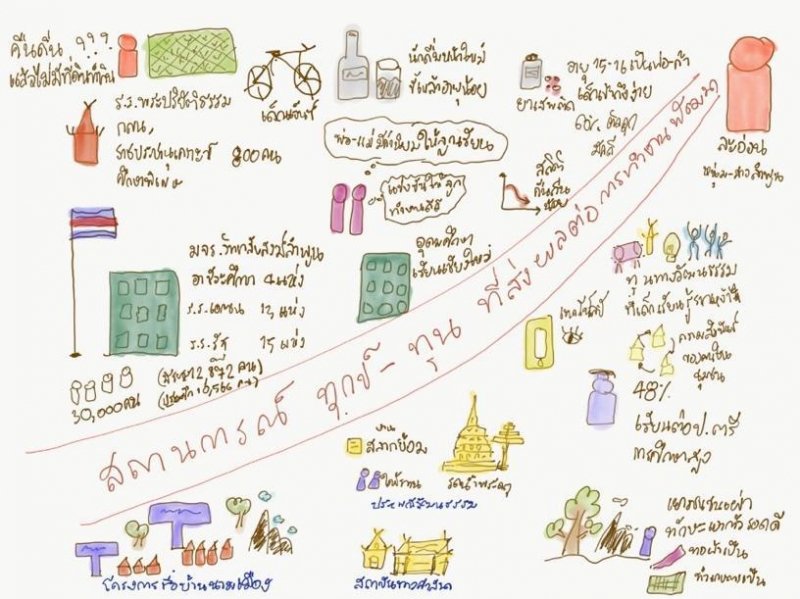 คืนถิ่น ???
แล้วไม่มีที่ดินทำกิน
ร.ร.พระปริยัติธรรม
กศน.
ราชประชานุเคราะห์ 800 คน
ศึกษาพิเศษ
เด็กแว๊นซ์
นักดื่มหน้าใหม่
ขี้เหล้าอายุน้อย
พ่อ-แม่มีค่านิยมให้ลูกเรียน
ให้ลูก
ทำงานดีดี
ยาเสพติด
อายุ 15-16 เป็นพ่อค้า
เด็กเข้าถึงง่าย
สถิติ
คืนถิ่น
น้อย
ละอ่อน
หนุ่ม-สาวลำพูน
มจร.วิทยาลัยสงฆ์ลำพูน
อาชีวะศึกษา 4 แห่ง
ร.ร.เอกชน 13 แห่ง
ร.ร.รัฐ 15 แห่ง
30,000 คน
อุดมศึกษา
เรียนเชียงใหม่
สถานการณ์ ทุกข์-ทุน ที่ส่งผลต่อการทำงานพัฒนา
ทุนทางวัฒนธรรม
เทคโนโลยี
ความสัมพันธ์
ของคนใน
ชุมชน
48%
เรียนต่อป.ตรี
การศึกษาสูง
งาน
สลากย้อม
ประเพณีวัฒนธรรม
โครงการชื่อบ้านนามเมือง
สถาบันศาสนา
เยาวชนชนเผ่า
ทักษะเอาตัวรอดดี
ทอผ้าเป็น